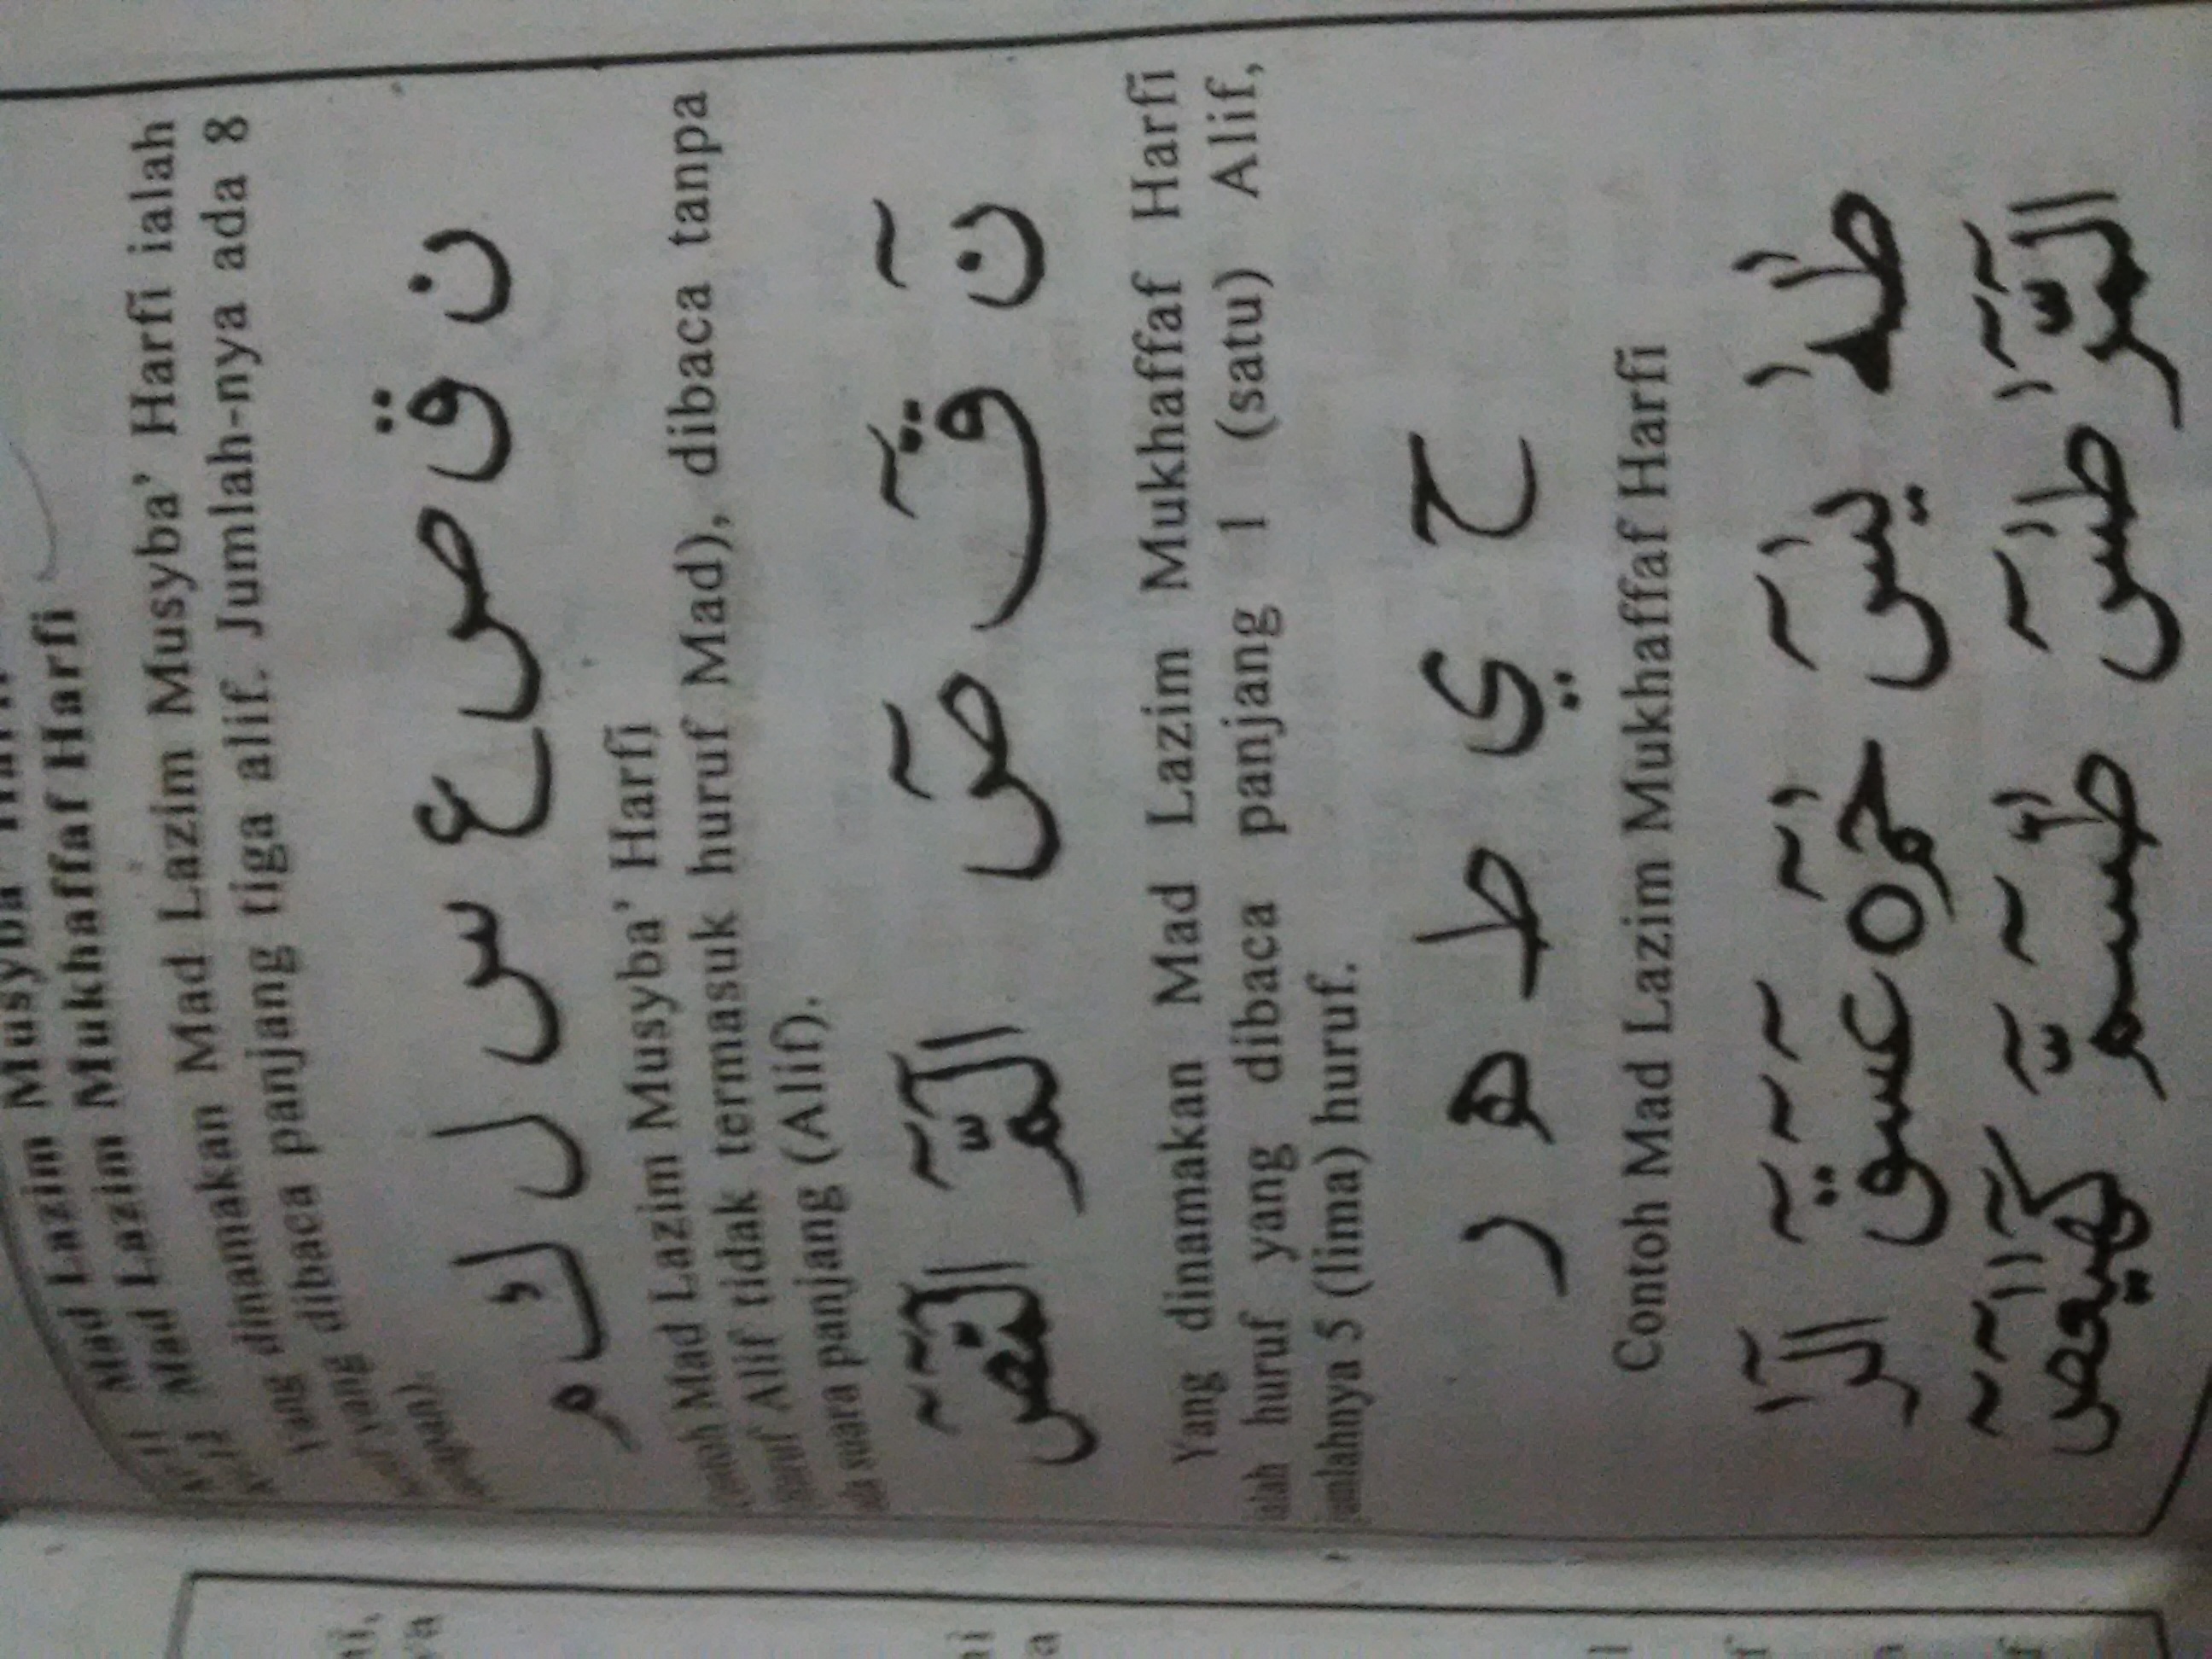 Mad Lazim Musyba' Harfi
Mad Lazim Mukhaffaf Harfi
Yang dinamakan Mad Lazim Musyba' Harfi ialah
yang dibaca panjang tiga alif. Jumlah-nya ada 8
ن ق ص ع س ل ك م
Mad Lazim Musyba' Harfi
Alif tidak termasuk huruf Mad), dibaca tanpa
suara panjang (Alif).
نٓ قٓ صٓ الٓمّٓرٰ الٓمّٓصٓ
Yang dinamakan Mad Lazim Mukhaffaf Harfi
ialah huruf yang dibaca panjang 1 (satu) Alif,
jumlahnya 5 (lima) huruf.
ح ي ط ه ر
Contoh Mad Lazim Mukhaffaf Harfi
طٰهٰ يٰسٓ حٰمٓ ○ عٓسٓقٓ الٓرٰ
الٓمّٓرٰ طٰسٓ طٰسٓمّٓ كٓهٰيٰعٓصٓ